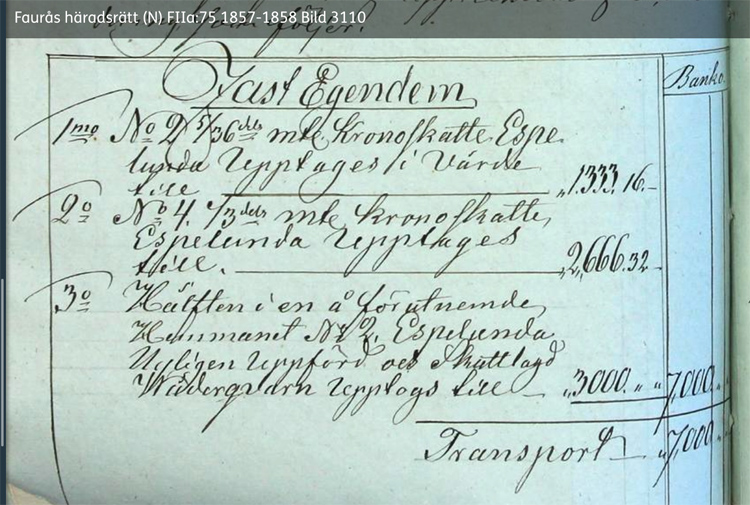 Faurås häradsrätt (N) FIIa:75 1857-1858 Bild 3110
Banko.
Fast Egendem
1mo No 2, 5/36dels mtl Kronoskatte Espe
lunda Upptages i Värde
till „1333.16.–
2o No 4. 1/3dels mtl Kronoskatte,
Espelunda Upptages
till. „2,666.32
3o Hälften i en å förutnemde
Hemmanet No 2. Espelunda
Nyligen Uppförd och Skattlagd
Wäderqvarn Upptogs till „3000. „ „ 7,000. „
Transport „7,000. „